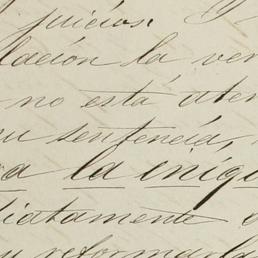 juicios.
lación la ver
no está aten
su sentencia,
a la iniqu
diatamente
reformarla